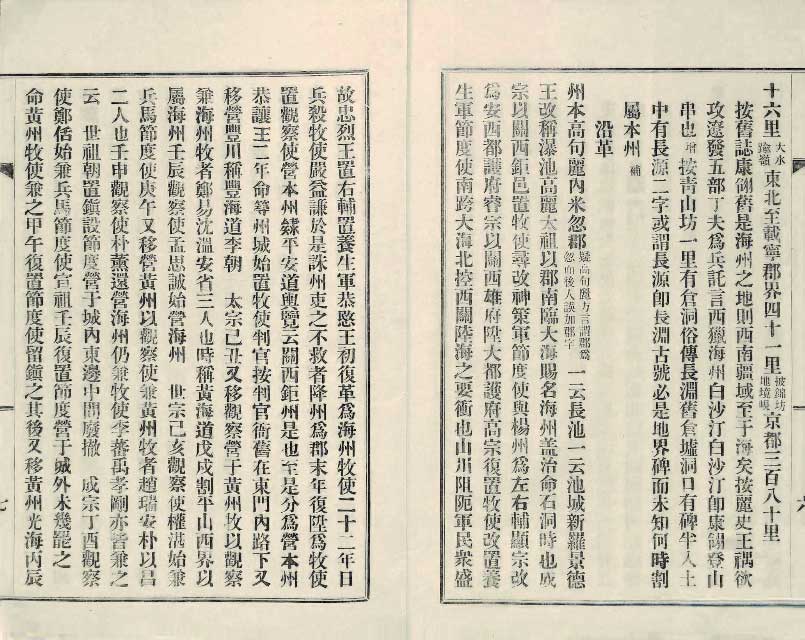 十六里大水鎗嶺東北至載寧郡界四十一里被錦坊地境峴京都三百八十里
按舊誌康翎舊是海州之地則西南疆域至于海矣按麗史王禑欲
攻遼發五部丁夫爲兵託言西獵海州白沙汀白沙汀卽康翎登山
串也增按青山坊一里有倉洞俗傳長淵舊倉墟洞口有碑半入土
中有長源二字或謂長源卽長淵古號必是地界碑而未知何時割
屬本州補
沿革
州本高句麗內米忽郡疑高句麗方言謂郡爲忽而後人誤加郡字一云長池一云池城新羅景德
王改稱瀑池高麗太祖以郡南臨大海賜名海州盖治命石洞時也成
宗以關西鉅邑置牧使尋改神策軍節度使與楊州爲左右輔顯宗改
爲安西都護府睿宗以關西雄府陞大都護府高宗復置牧使改置養
生軍節度使南跨大海北控西關陸海之要衝也山川阻阨軍民衆盛
故忠烈王置右輔置養生軍恭愍王初復革爲海州牧使二十二年日
兵殺牧使嚴益謙於是誅州吏之不救者降州爲郡末年復陞爲牧使
置觀察使營本州錄平安道輿覽云關西鉅州是也至是分爲營本州
恭讓王二年命等州城始置牧使判官按判官衙舊在東門內路下又
移營豐川稱豐海道李朝　太宗己丑又移觀察營于黃州牧以觀察
兼海州牧者鄭易沈溫安省三人也時稱黃海道戊戌割平山西界以
屬海州壬辰觀察使孟思誠始營海州　世宗己亥觀察使權湛始兼
兵馬節度使庚午又移營黃州以觀察使兼黃州牧者趙瑞安朴以昌
二人也壬申觀察使朴薰還營海州仍兼牧使李蕃禹孝剛亦皆兼之
云　世祖朝置鎭設節度營于城內東邊中間廢撤　成宗丁酉觀察
使鄭佸始兼兵馬節度使宣祖壬辰復置節度營于城外未幾罷之
命黃州牧使兼之甲午復置節度使留鎭之其後又移黃州光海丙辰
六
七